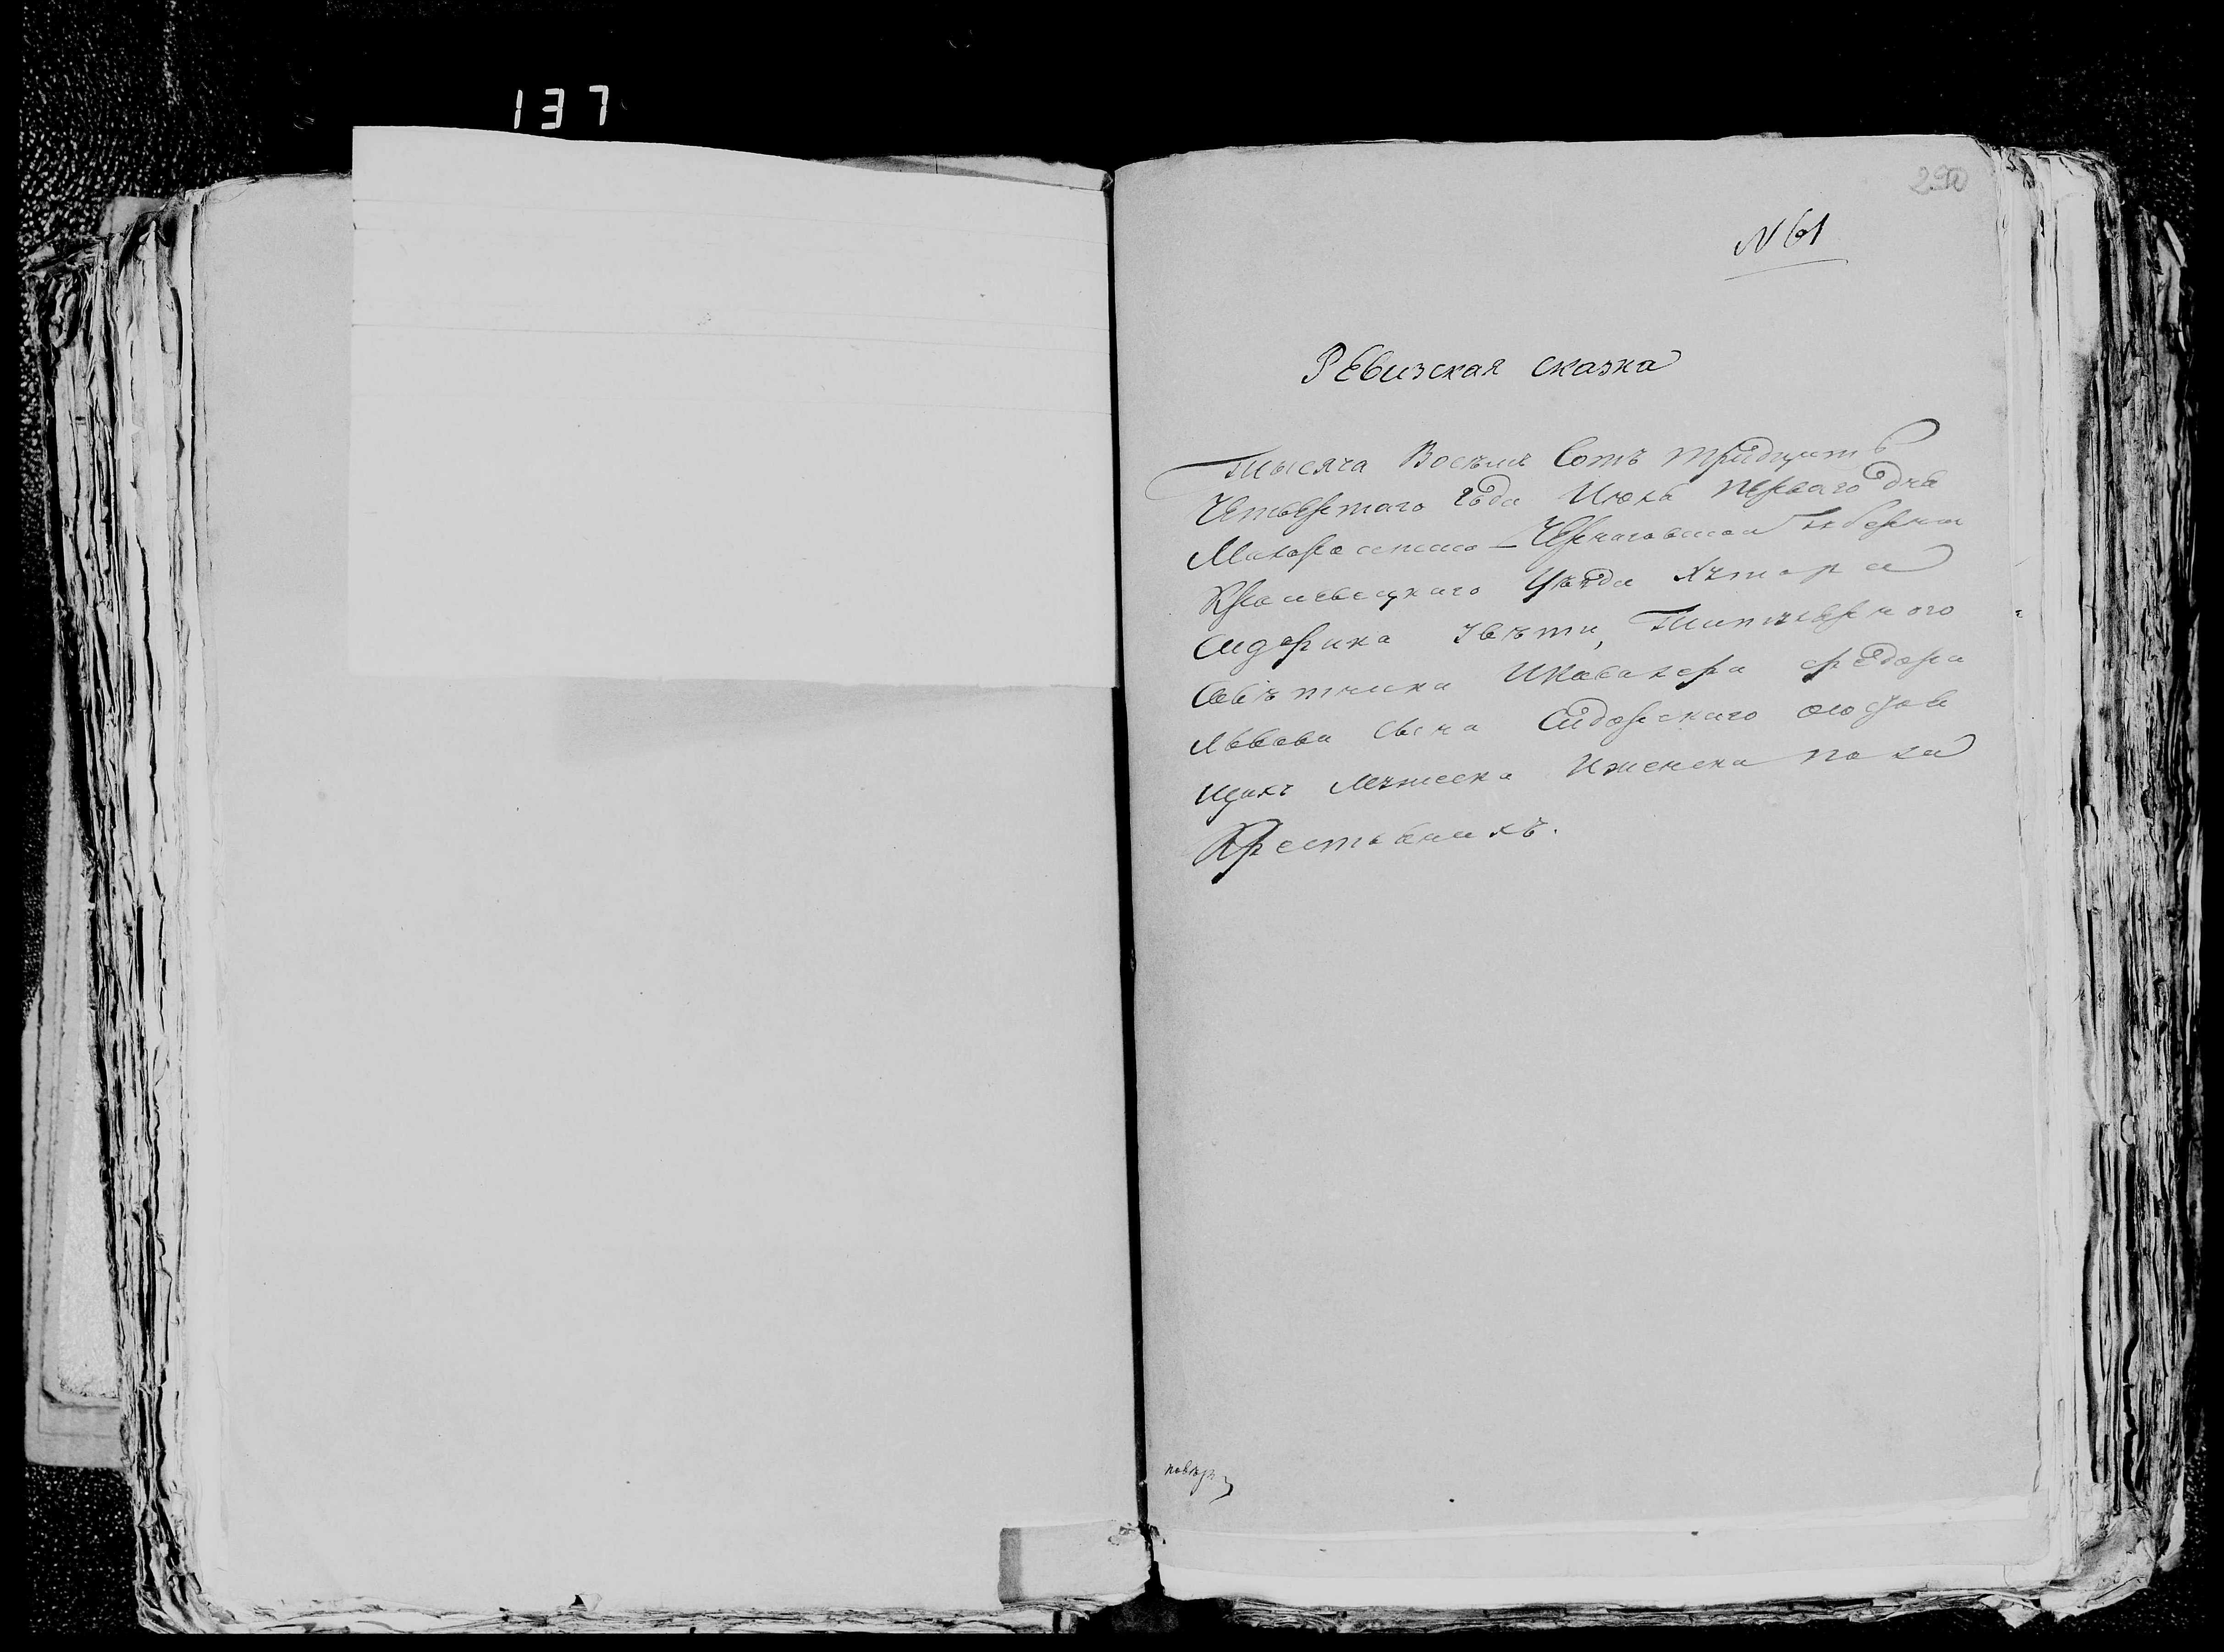 137
290
N 61
Ревизская сказка
Тысяча Восемъ Сотъ тридцать
Четвертаго года Июня первого дня
Малоросииско-Черниговской Губернии
Кролевецкаго Уезда хутора
титулярного
Советника Икавалера федора
Львова сына состоя
щихъ мужеска Иженска пола
Крестьянихъ.